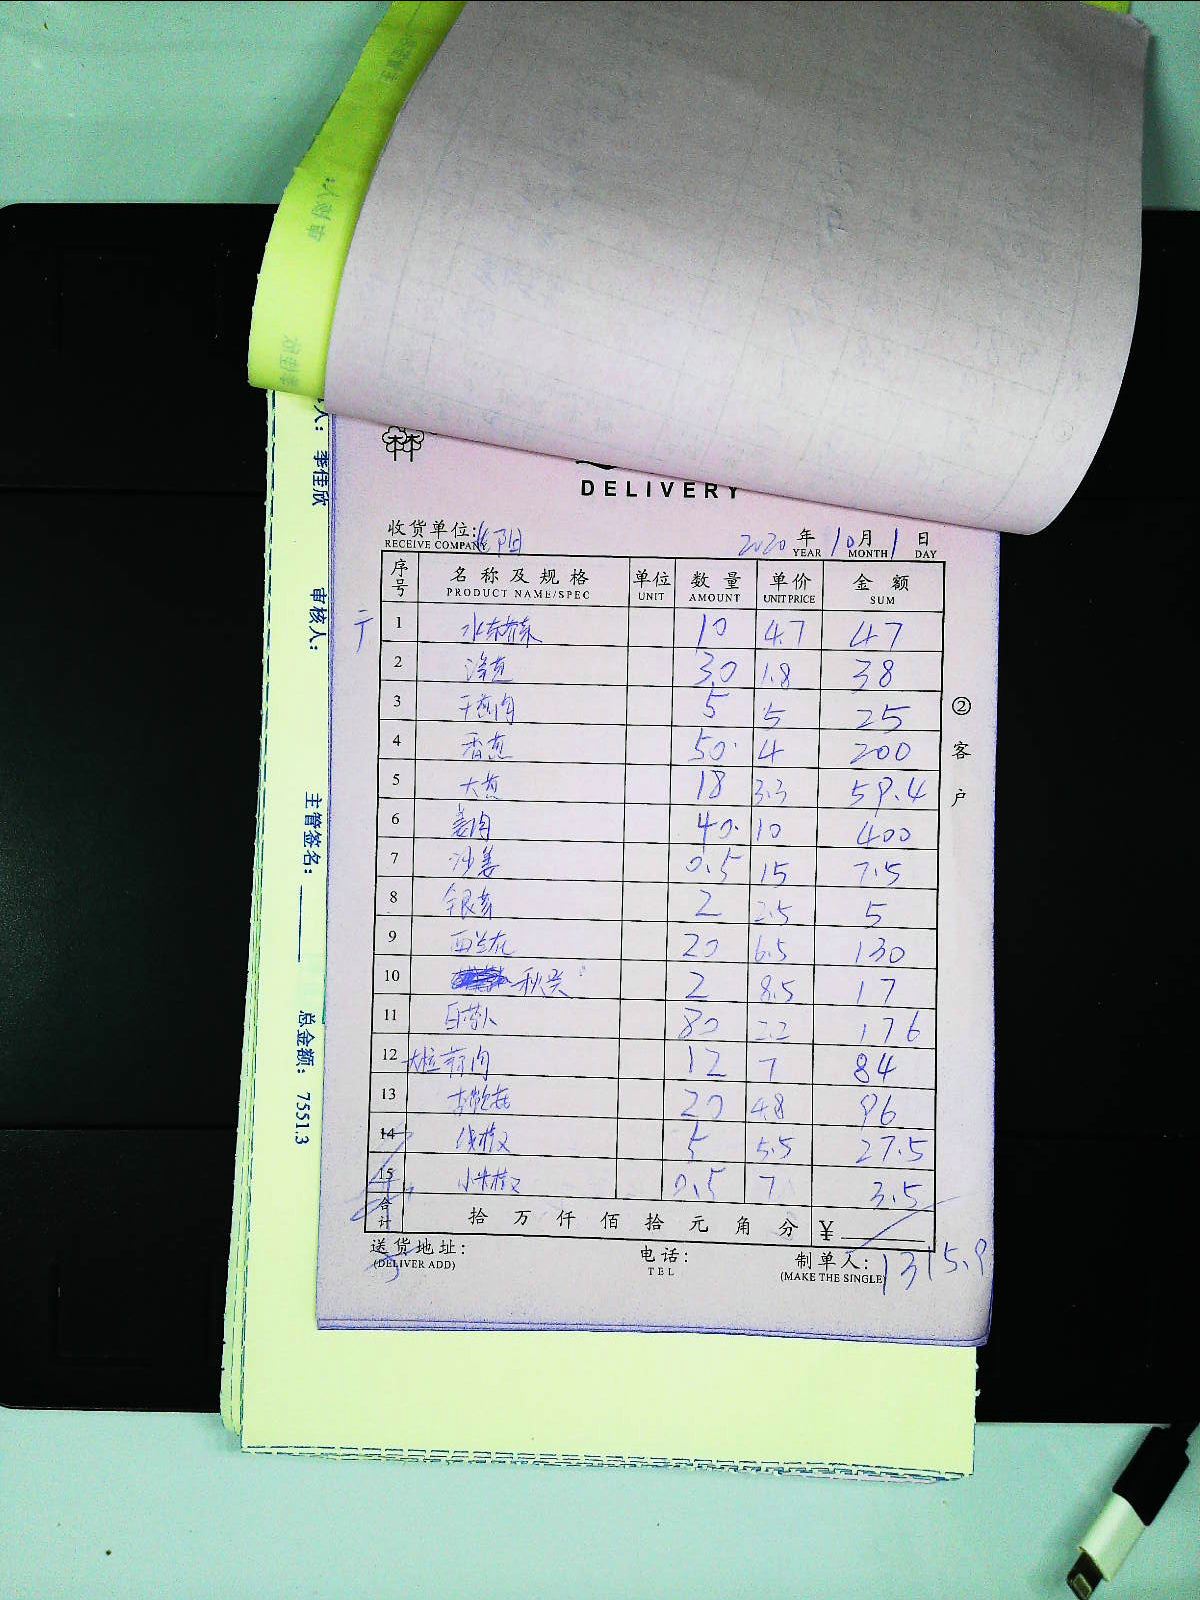 DELIVERY
收货单位:
RECEIVE COMPANY
2020 年 10 月 1 日
YEAR MONTH DAY
序号 名称及规格 单位 数量 单价 金额
PRODUCT NAME/SPEC UNIT AMOUNT UNIT PRICE SUM
1 水东芥菜 10 4.7 47
2 30 1.8 38
3 干葱肉 5 5 25
4 香葱 50 4 200
5 大葱 18 3.3 59.4
6 姜肉 40 10 400
7 沙姜 0.5 15 7.5
8 银芽 2 2.5 5
9 西兰花 20 6.5 130
10 秋葵 2 8.5 17
11 80 2.2 176
12 大粒蒜肉 12 7 84
13 20 4.8 96
14 线椒 5 5.5 27.5
15 小米椒 0.5 7 3.5
合计 拾 万 仟 佰 拾 元 角 分 ¥
1315.9
送货地址: 电话: 制单人:
(DELIVER ADD) TEL (MAKE THE SINGLE)
② 客户
人: 李佳欣
审核人:
主管签名:
总金额: 7551.3